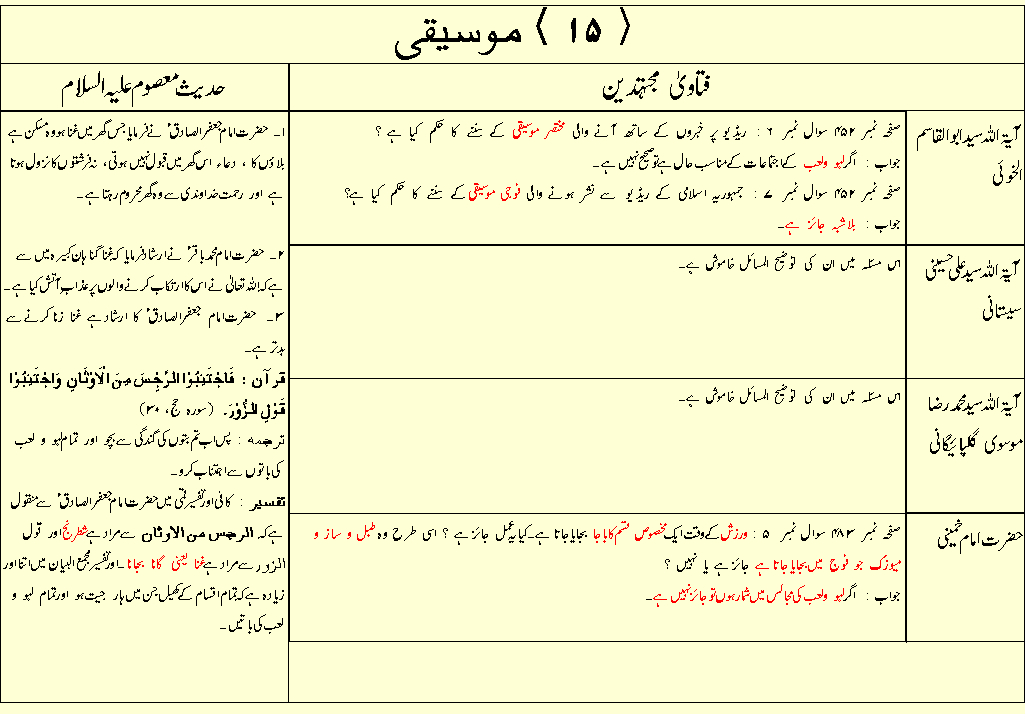 ﴿ ۱۵ ﴾ موسیقی
فتاویٰ مجتہدین
حدیث معصوم علیہ السلام
آیۃ اللہ سید ابوالقاسم
الخوئی
صفحہ نمبر ۴۵۲ سوال نمبر ۶ : ریڈیو پر خبروں کے ساتھ آنے والی مختصر موسیقی کے سننے کا حکم کیا ہے ؟
جواب : اگر لہو ولعب کے اجتماعات کے مناسب حال ہے تو صحیح نہیں ہے۔
صفحہ نمبر ۴۵۲ سوال نمبر ۷ : جمہوریہ اسلامی کے ریڈیو سے نشر ہونے والی فوجی موسیقی کے سننے کا حکم کیا ہے؟
جواب : بلاشبہ جائز ہے۔
آیۃ اللہ سید علی حسینی
سیستانی
اس مسئلہ میں ان کی توضیح المسائل خاموش ہے۔
آیۃ اللہ سید محمد رضا
موسوی گلپائیگانی
اس مسئلہ میں ان کی توضیح المسائل خاموش ہے۔
حضرت امام خمینی
صفحہ نمبر ۴۸۳ سوال نمبر ۵ : ورزش کے وقت ایک مخصوص قسم کا باجا بجایا جاتا ہے۔ کیا یہ عمل جائز ہے ؟ اسی طرح وہ طبل و ساز و
میوزک جو فوج میں بجایا جاتا ہے جائز ہے یا نہیں ؟
جواب : اگر لہو ولعب کی مجالس میں شمار ہوں تو جائز نہیں ہے۔
۱۔ حضرت امام جعفر الصادقؑ نے فرمایا جس گھر میں غنا ہو وہ مسکن ہے
بلاؤں کا ، دعاء اس گھر میں قبول نہیں ہوتی، نہ فرشتوں کا نزول ہوتا
ہے اور رحمت خداوندی سے وہ گھر محروم رہتا ہے۔
۲۔ حضرت امام محمد باقرؑ نے ارشاد فرمایا کہ غنا گناہان کبیرہ میں سے
ہے کہ اللہ تعالیٰ نے اس کا ارتکاب کرنے والوں پر عذاب آتش کیا ہے۔
۳۔ حضرت امام جعفر الصادقؑ کا ارشاد ہے غنا زنا کرنے سے
بدتر ہے۔
قرآن : فَاجْتَنِبُوْا الرِّجْسَ مِنَ الْاَوْثَانِ وَاجْتَنِبُوْا
قَوْلَ الزُّوْرَ۔ (سورہ حج، ۳۰)
ترجمہ : پس اب تم بتوں کی گندگی سے بچو اور تمام لہو و لعب
کی باتوں سے اجتناب کرو۔
تفسیر : کافی اور تفسیر قمی میں حضرت امام جعفر الصادقؑ سے منقول
ہے کہ الرجس من الاوثان سے مراد ہے شطرنج اور قول
الزور سے مراد ہے غنا یعنی گانا بجانا۔ اور تفسیر مجمع البیان میں اتنا اور
زیادہ ہے کہ تمام اقسام کے کھیل جن میں ہار جیت ہو اور تمام لہو و
لعب کی باتیں۔